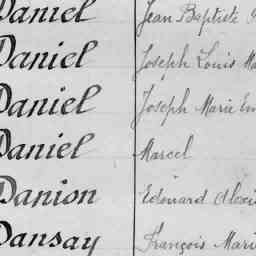 Daniel Jean Baptiste
Daniel Joseph Louis
Daniel Joseph Marie
Daniel Marcel
Danion Edouard Alexis
Dansay François Marie